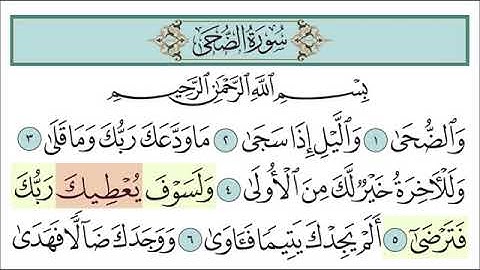 سُورَةُ الضُّحَىٰ
بِسْمِ ٱللَّهِ ٱلرَّحْمَٰنِ ٱلرَّحِيمِ
وَٱلضُّحَىٰ ١ وَٱلَّيْلِ إِذَا سَجَىٰ ٢ مَا وَدَّعَكَ رَبُّكَ وَمَا قَلَىٰ ٣
وَلَلْءَاخِرَةُ خَيْرٌ لَّكَ مِنَ ٱلْأُولَىٰ ٤ وَلَسَوْفَ يُعْطِيكَ رَبُّكَ
فَتَرْضَىٰٓ ٥ أَلَمْ يَجِدْكَ يَتِيمًا فَـَٔاوَىٰ ٦ وَوَجَدَكَ ضَآلًّا فَهَدَىٰ